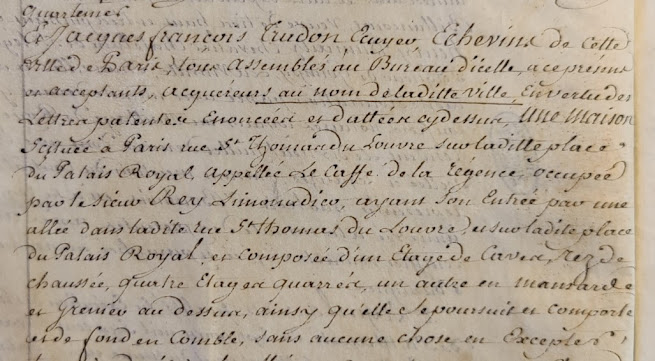 quartinier
Et Jacques françois Trudon Ecuyer, Echevins de cette
ville de Paris, tous assemblés au Bureau d'icelle, a ce présens
et acceptants, acquereurs au nom de la ditte Ville, En vertu des
Lettres patentes Enoncées et dattées cy dessus, Une maison
Scituée à Paris rue St Thomas du Louvre sur la ditte place
du Palais Royal, appellée Le Caffé de la régence, occupée
par le sieur Rey Limonadier, ayant son Entrée par une
allée dans ladite rue St thomas du Louvre, et sur ladite place
du Palais Royal, et composée d'un Etage de Caves, rez de
chaussée, quatre Etages quarrés, un autre en mansarde
et Grenier au dessus, ainsy qu'elle se poursuit et comporte
et de fond en Comble, sans aucune chose en Excepter